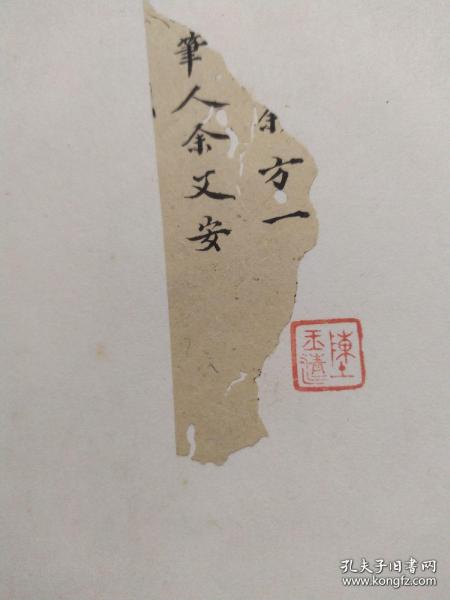 方一
筆人余安
陳
孔夫子旧书网
www.kongfz.com